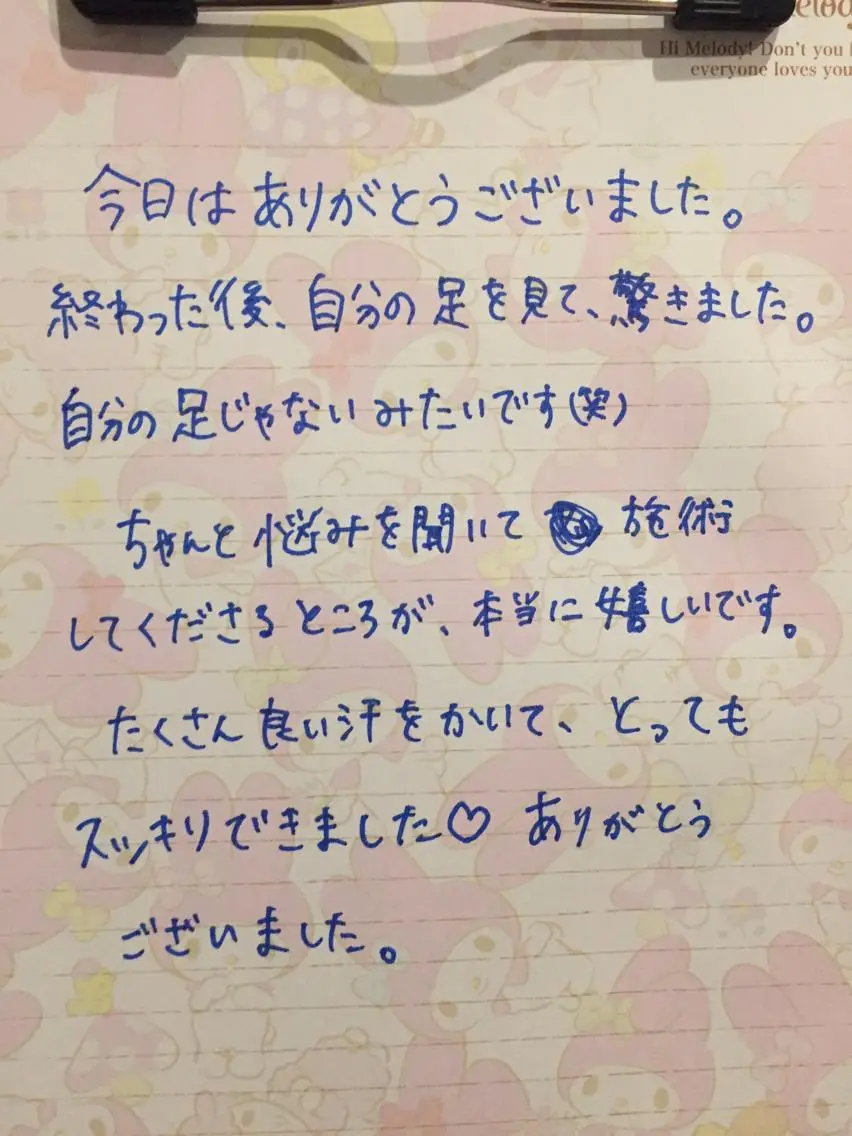 elody
Hi Melody! Don't you
everyone loves you
今日はありがとうございました。
終わった後、自分の足を見て、驚きました。
自分の足じゃないみたいです(笑)
ちゃんと悩みを聞いて 施術
してくださるところが、本当に嬉しいです。
たくさん良い汗をかいて、とっても
スッキリできました♡ ありがとう
ございました。